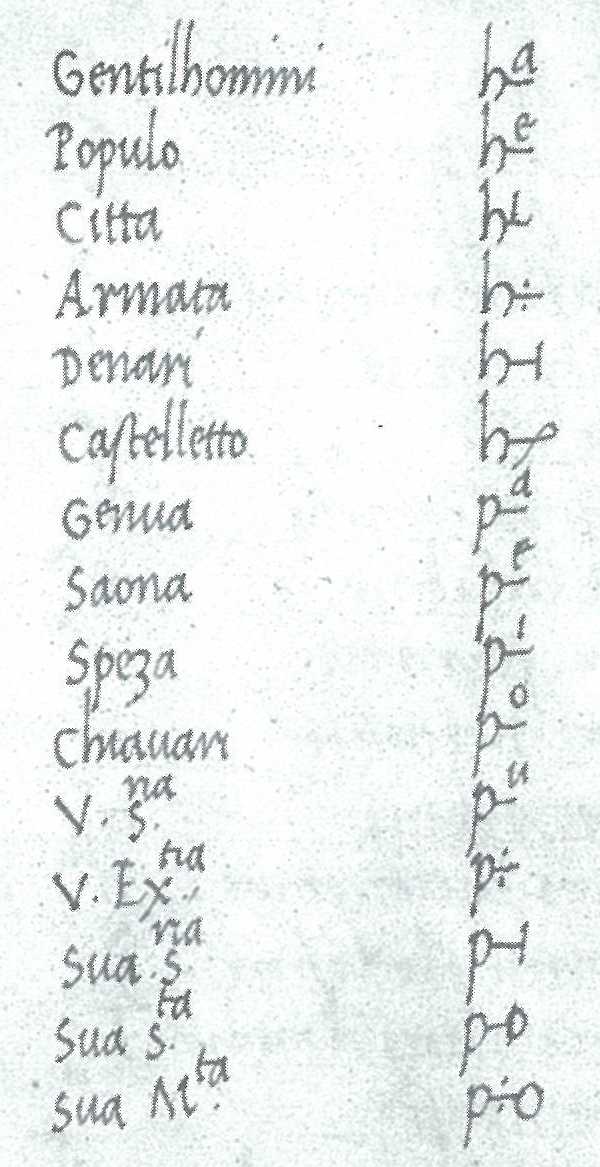 Gentilhomini hᵃ
Populo hᵉ
Citta
Armata h÷
Denari
Castelletto
Genua pᵃ
Saona pᵉ
Speza pⁱ
Chiauari pᵒ
V. Sʳⁱᵃ. pᵘ
V. Exᵗⁱᵃ. p÷
Sua Sʳⁱᵃ
Sua Sᵗᵃ.
Sua Mᵗᵃ.